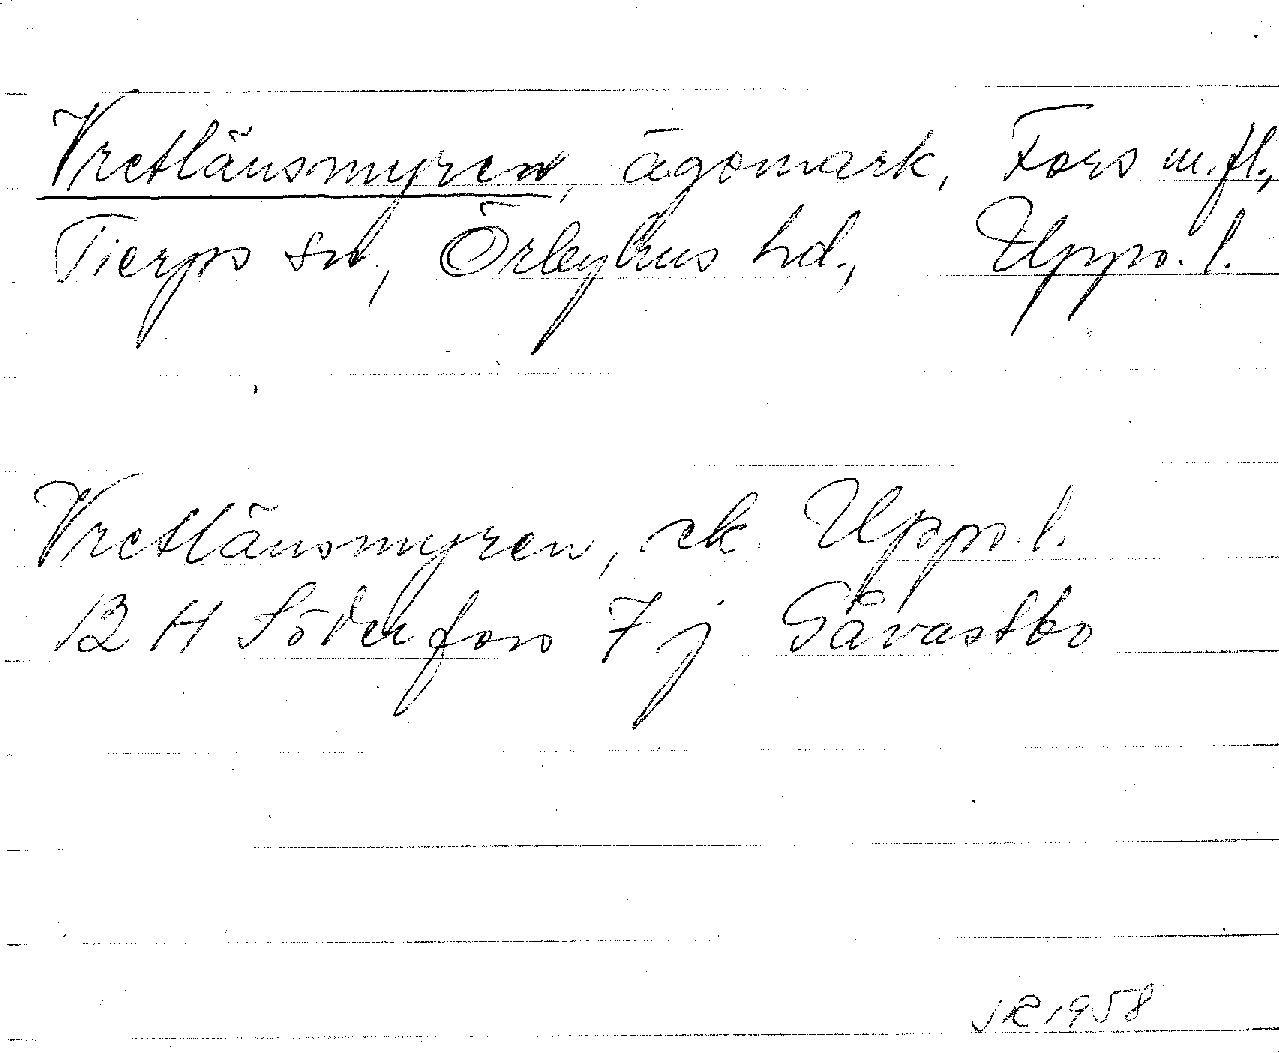 Vretlänsmyren, ägomark, Fors m.fl.,
Tierps sn, Örbyhus hd., Upps. l.
Vretlänsmyren, ek. Upps. l.
12 H Söderfors 7 j Gåvastbo
JR 1958